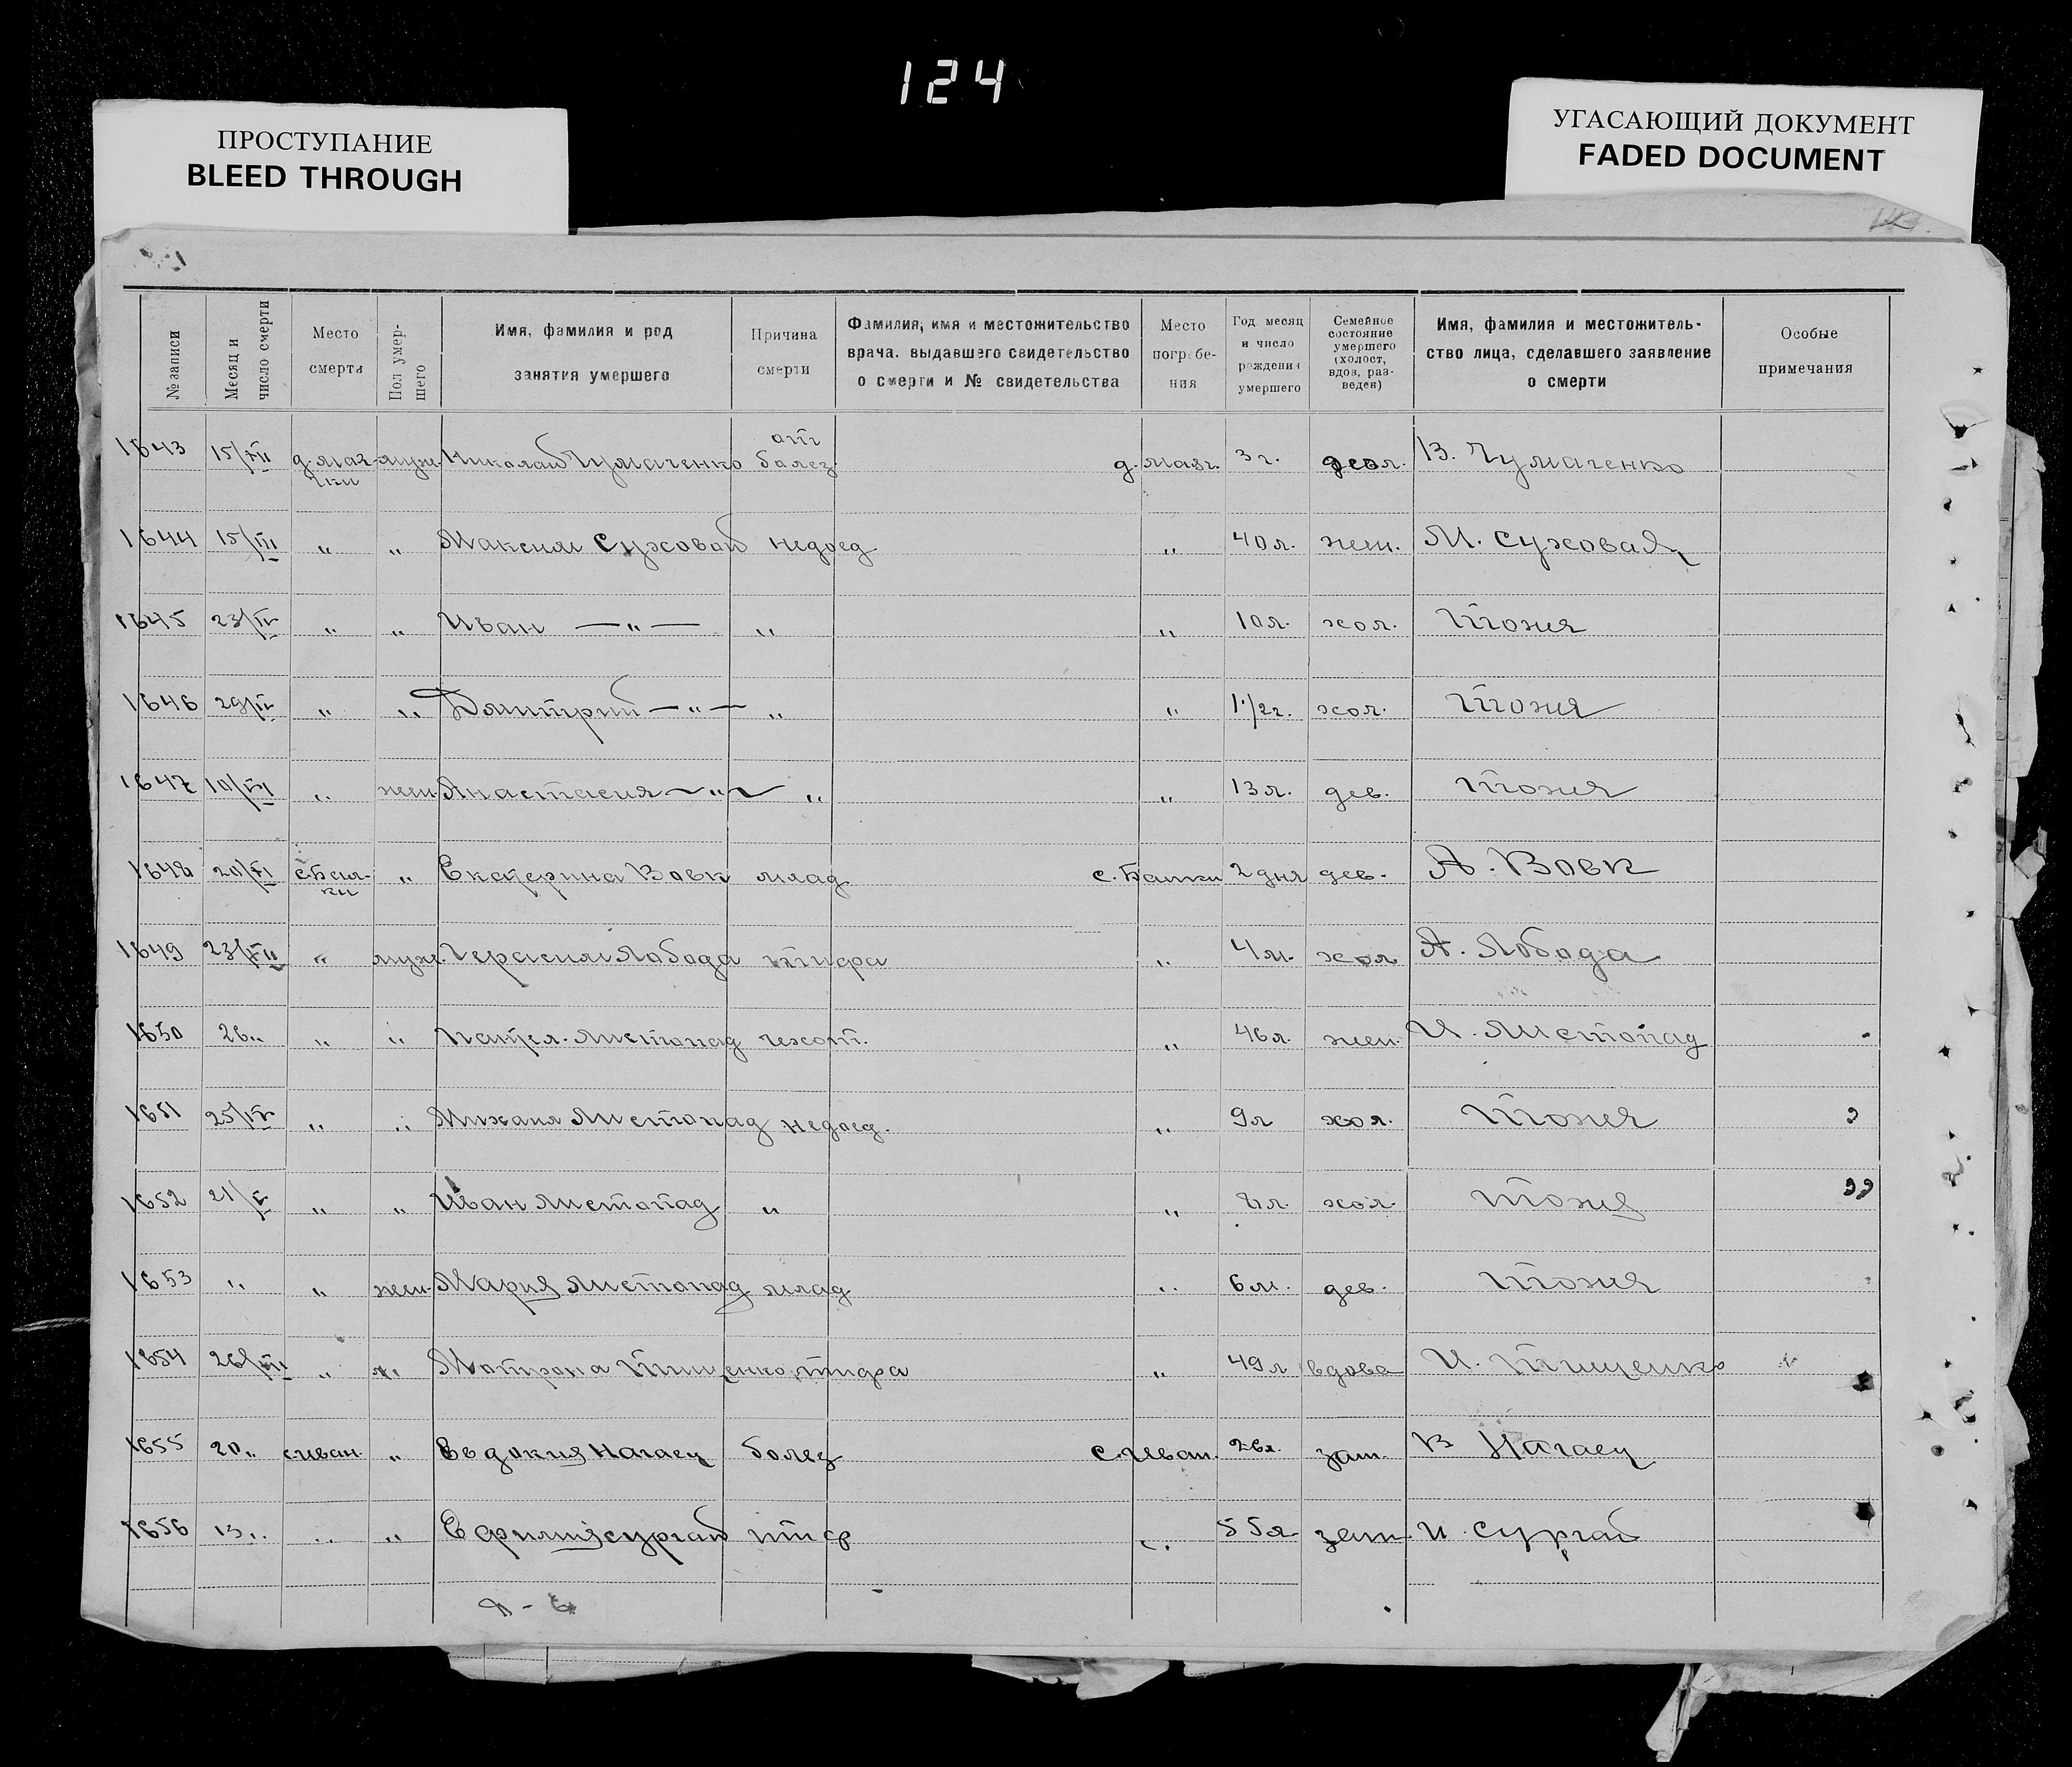 124
ПРОСТУПАНИЕ
BLEED THROUGH
УГАСАЮЩИЙ ДОКУМЕНТ
FADED DOCUMENT
№ записи
Месяц и число смерти
Место смерти
Пол умершего
Имя, фамилия и род занятия умершего
Причина смерти
Фамилия, имя и местожительство врача, выдавшего свидетельство о смерти и № свидетельства
Место погребения
Год, месяц и число рождения умершего
Семейное состояние умершего (холост, вдов, разведен)
Имя, фамилия и местожительство лица, сделавшего заявление о смерти
Особые примечания
1643 15/III муж. Николай Чумаченко болез. 3 г. В. Чумаченко
1644 15/III " " Максим Суховой недоед " 40 л. жен. М. Суховая
1645 23/IV " " Иван —"— " " 10 л. хол. Тоже
1646 29/IV " " Дмитрий —"— " " 1 1/2 г. хол. Тоже
1647 10/VI " жен. Анастасия —"— " " 13 л. дев. Тоже
1648 20/VI " Екатерина Вовк млад. 2 дня дев. А. Вовк
1649 " муж. Герасим Лобода тифа " 4 м. хол А. Лобода
1650 26 " " " Листопад чехот. " 46 л. жен. И. Листопад
1651 25/IV " " Михаил Листопад недоед. " 9 л хол. Тоже
1652 21/V " " Иван Листопад " " 8 л. хол. Тоже
1653 " " жен. Мария Листопад млад " 6 м. дев. Тоже
1654 " " Мотрона Тищенко тифа " 49 л вдова И. Тищенко
1655 20 " с. Иван. " Евдокия Нагаец болез с. Иван. 26 л. зам. В Нагаец
1656 13 " " " Сургай тиф " 55 л зам. И. Сургай